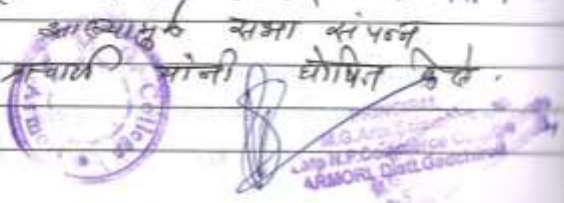 झाल्यामुळे सभा संपन्न
प्राचार्य यांनी घोषित केले.
College
M.G. Arts
Late N.P. Commerce
ARMORI, Distt. Gadchiroli